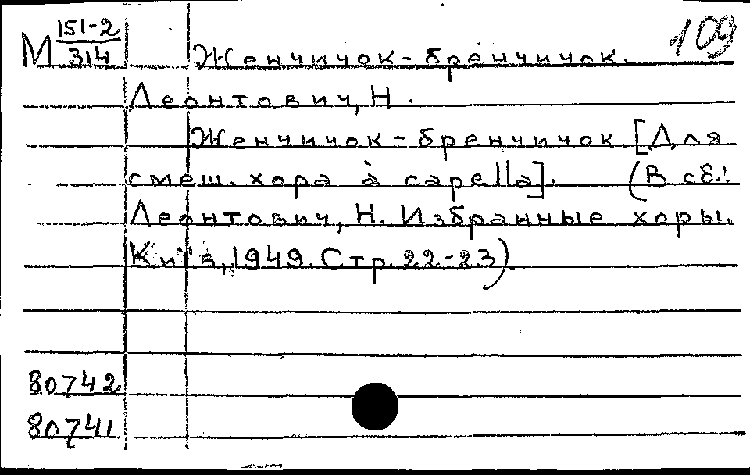 109
М 151-2/314 Женчичок-бренчичок.
Леонтович, Н.
Женчичок-бренчичок [Для
смеш. хора à capella]. (В сб.:
Леонтович, Н. Избранные хоры.
Київ, 1949. Стр. 22-23)
80742
80741